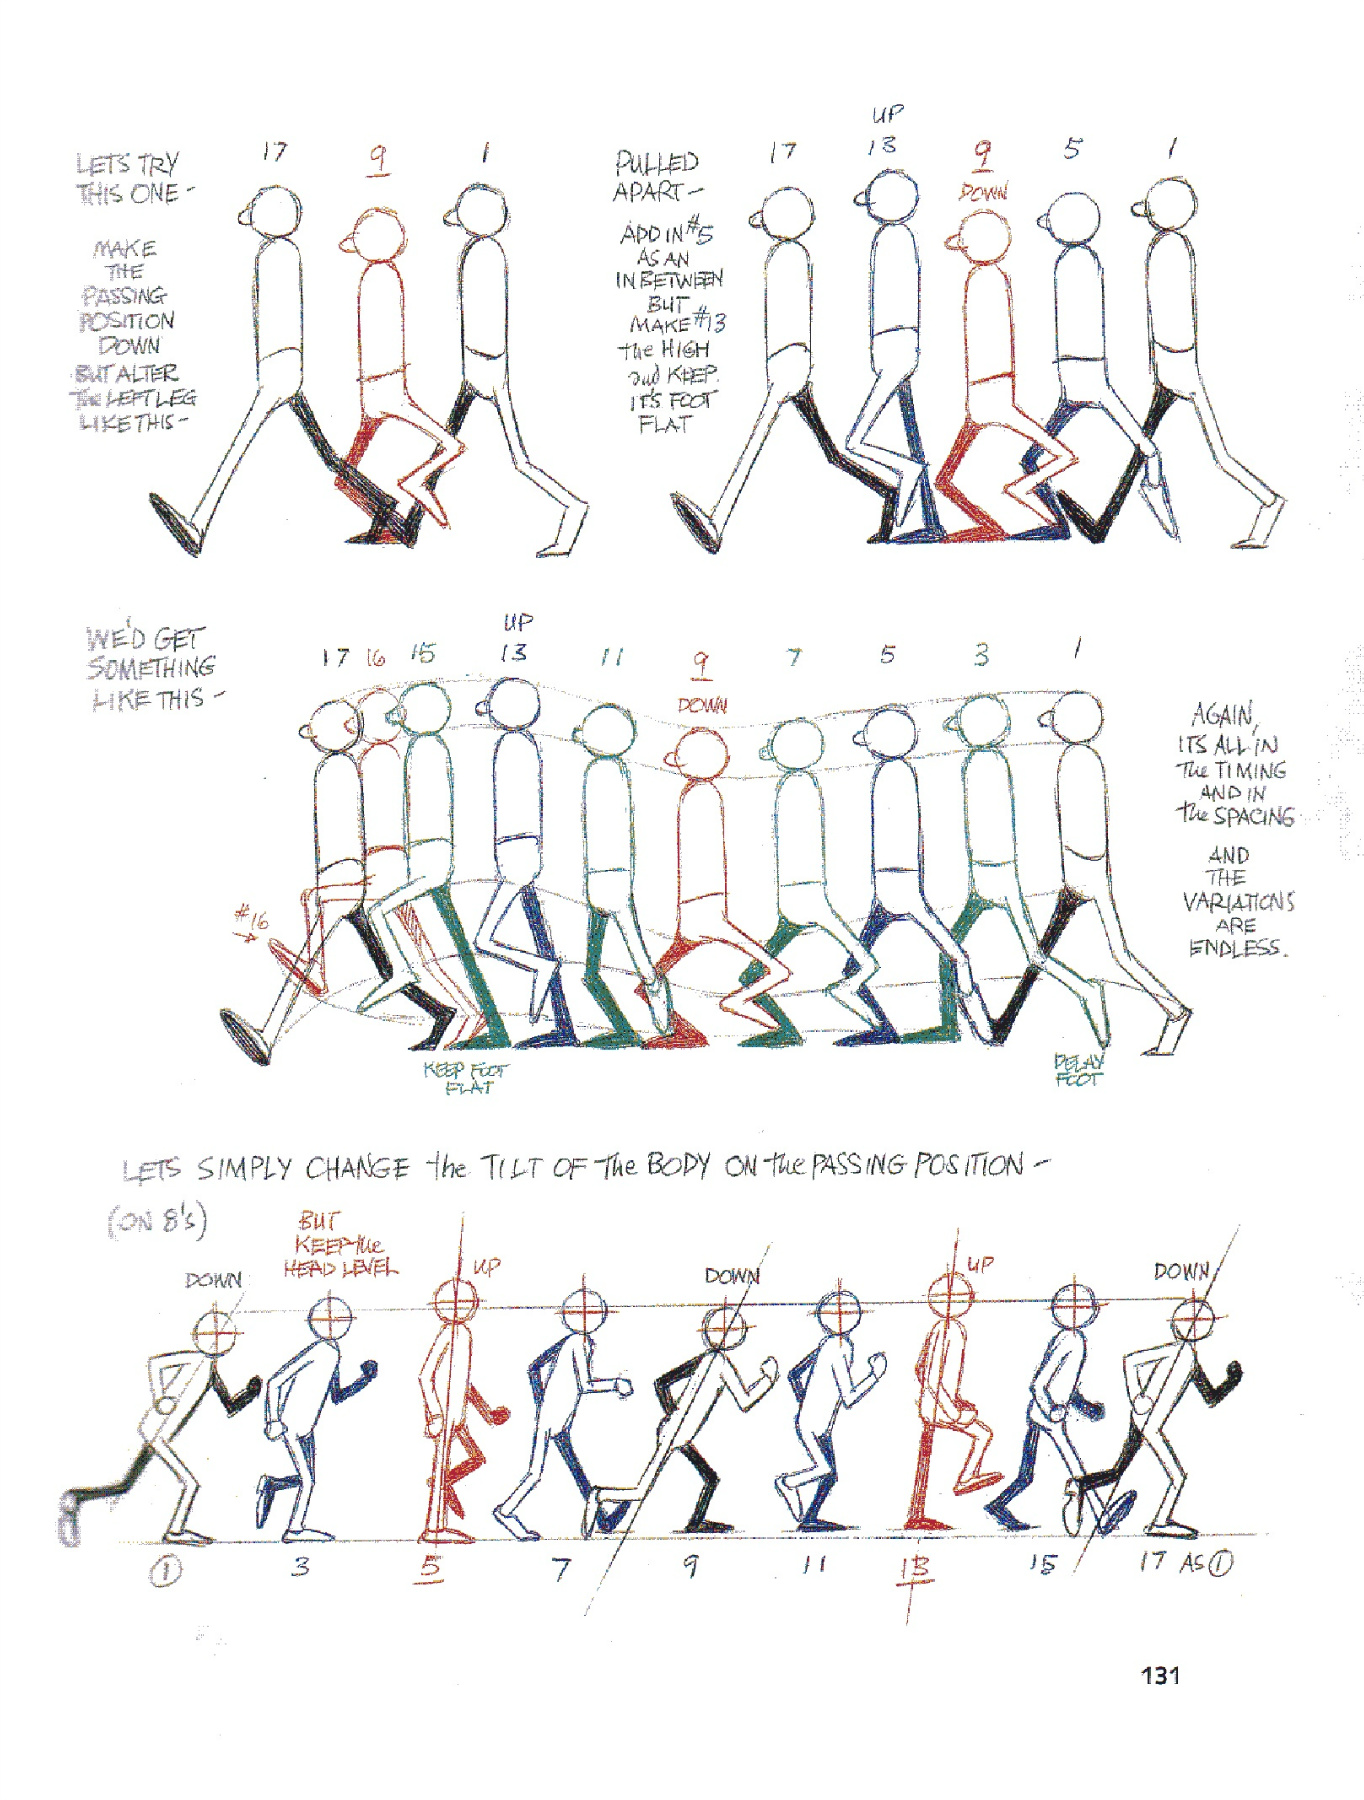 LETS TRY
THIS ONE -
17 9 1
MAKE
THE
PASSING
POSITION
DOWN
BUT ALTER
The LEFT LEG
LIKE THIS -
PULLED
APART -
ADD IN #5
AS AN
IN BETWEEN
BUT
MAKE #13
the HIGH
and KEEP
IT'S FOOT
FLAT
UP
17 13 9 5 1
DOWN
WE'D GET
SOMETHING
LIKE THIS -
UP
17 16 15 13 11 9 7 5 3 1
DOWN
#16
KEEP FOOT
FLAT
DELAY
FOOT
AGAIN,
ITS ALL IN
The TIMING
AND IN
the SPACING
AND
THE
VARIATIONS
ARE
ENDLESS.
LETS SIMPLY CHANGE the TILT OF The BODY ON the PASSING POSITION -
(ON 8's)
BUT
KEEP the
HEAD LEVEL
DOWN UP DOWN UP DOWN
1 3 5 7 9 11 13 15 17 AS 1
131